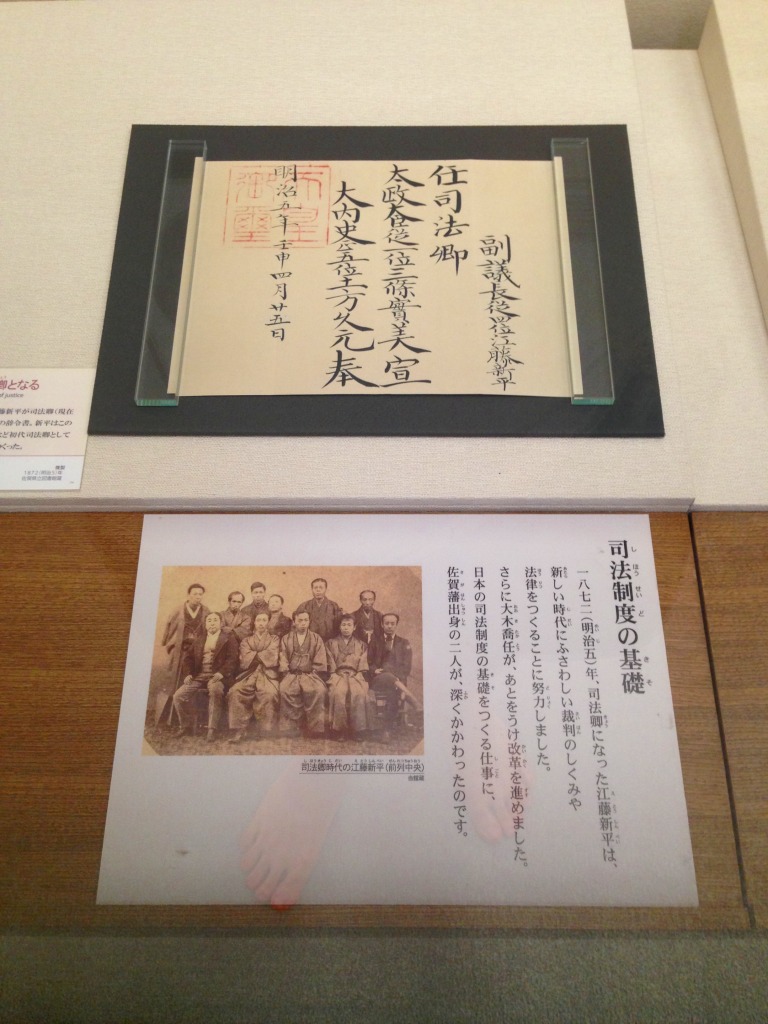 副議長従四位江藤新平
任司法卿
太政大臣従一位三條實美宣
大内史正五位土方久元奉
明治五年壬申四月廿五日
天皇
御璽
卿となる
of justice
藤新平が司法卿(現在
の辞令書。新平はこの
ど初代司法卿として
くった。
複製
1872(明治5)年
佐賀県立図書館蔵
司法制度の基礎
しほうせいど きそ
一八七二(明治五)年、司法卿になった江藤新平は、
新しい時代にふさわしい裁判のしくみや
法律をつくることに努力しました。
さらに大木喬任が、あとをうけ改革を進めました。
日本の司法制度の基礎をつくる仕事に、
佐賀藩出身の二人が、深くかかわったのです。
司法卿時代の江藤新平(前列中央)
当館蔵